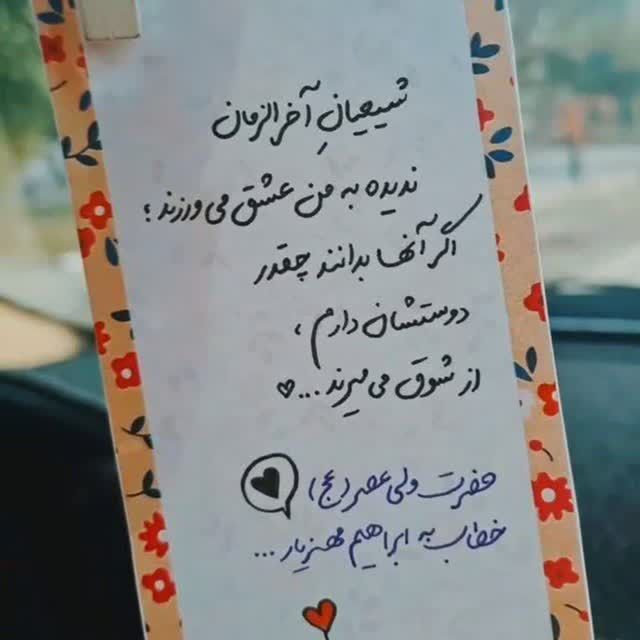 شیعیانِ آخرالزمان
ندیده به من عشق می ورزند ؛
اگر آنها بدانند چقدر
دوستشان دارم ،
از شوق می میرند ...♡
حضرت ولی عصر (عج)
خطاب به ابراهیم مهزیار ...